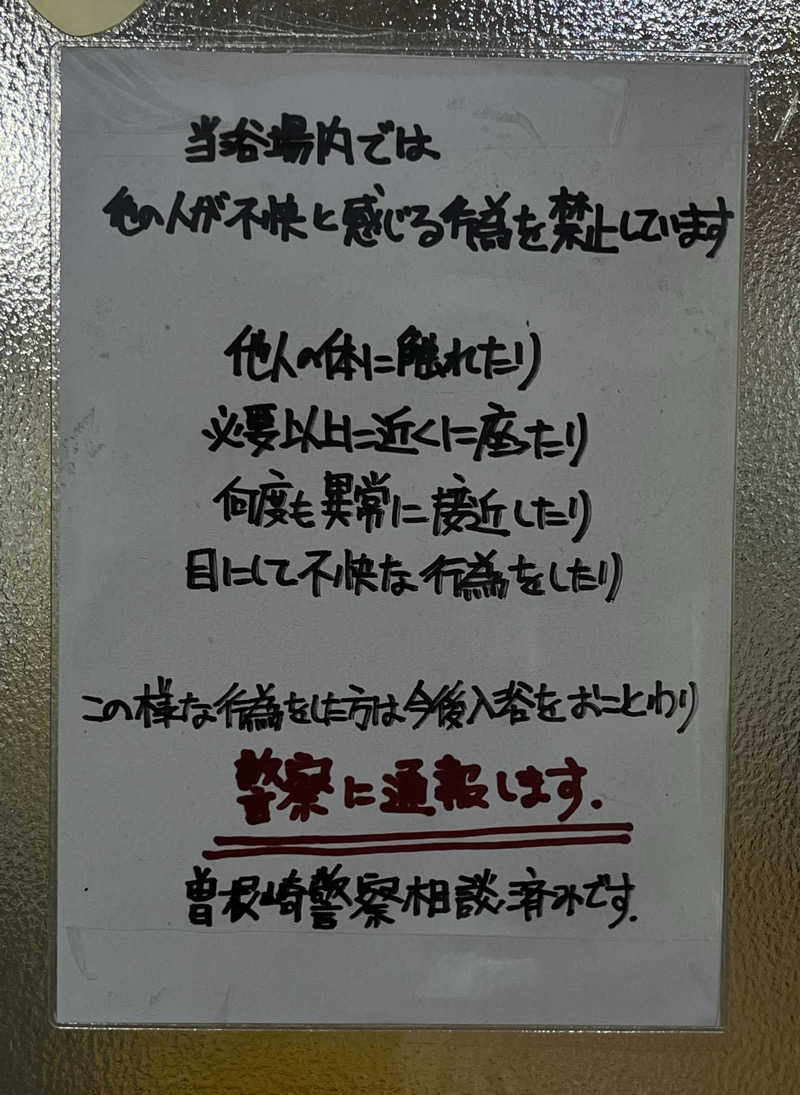 当浴場内では
他の人が不快と感じる行為を禁止しています
他人の体に触れたり
必要以上に近くに座ったり
何度も異常に接近したり
目にして不快な行為をしたり
この様な行為をした方は今後入浴をおことわり
警察に通報します.
曽根崎警察相談済みです.